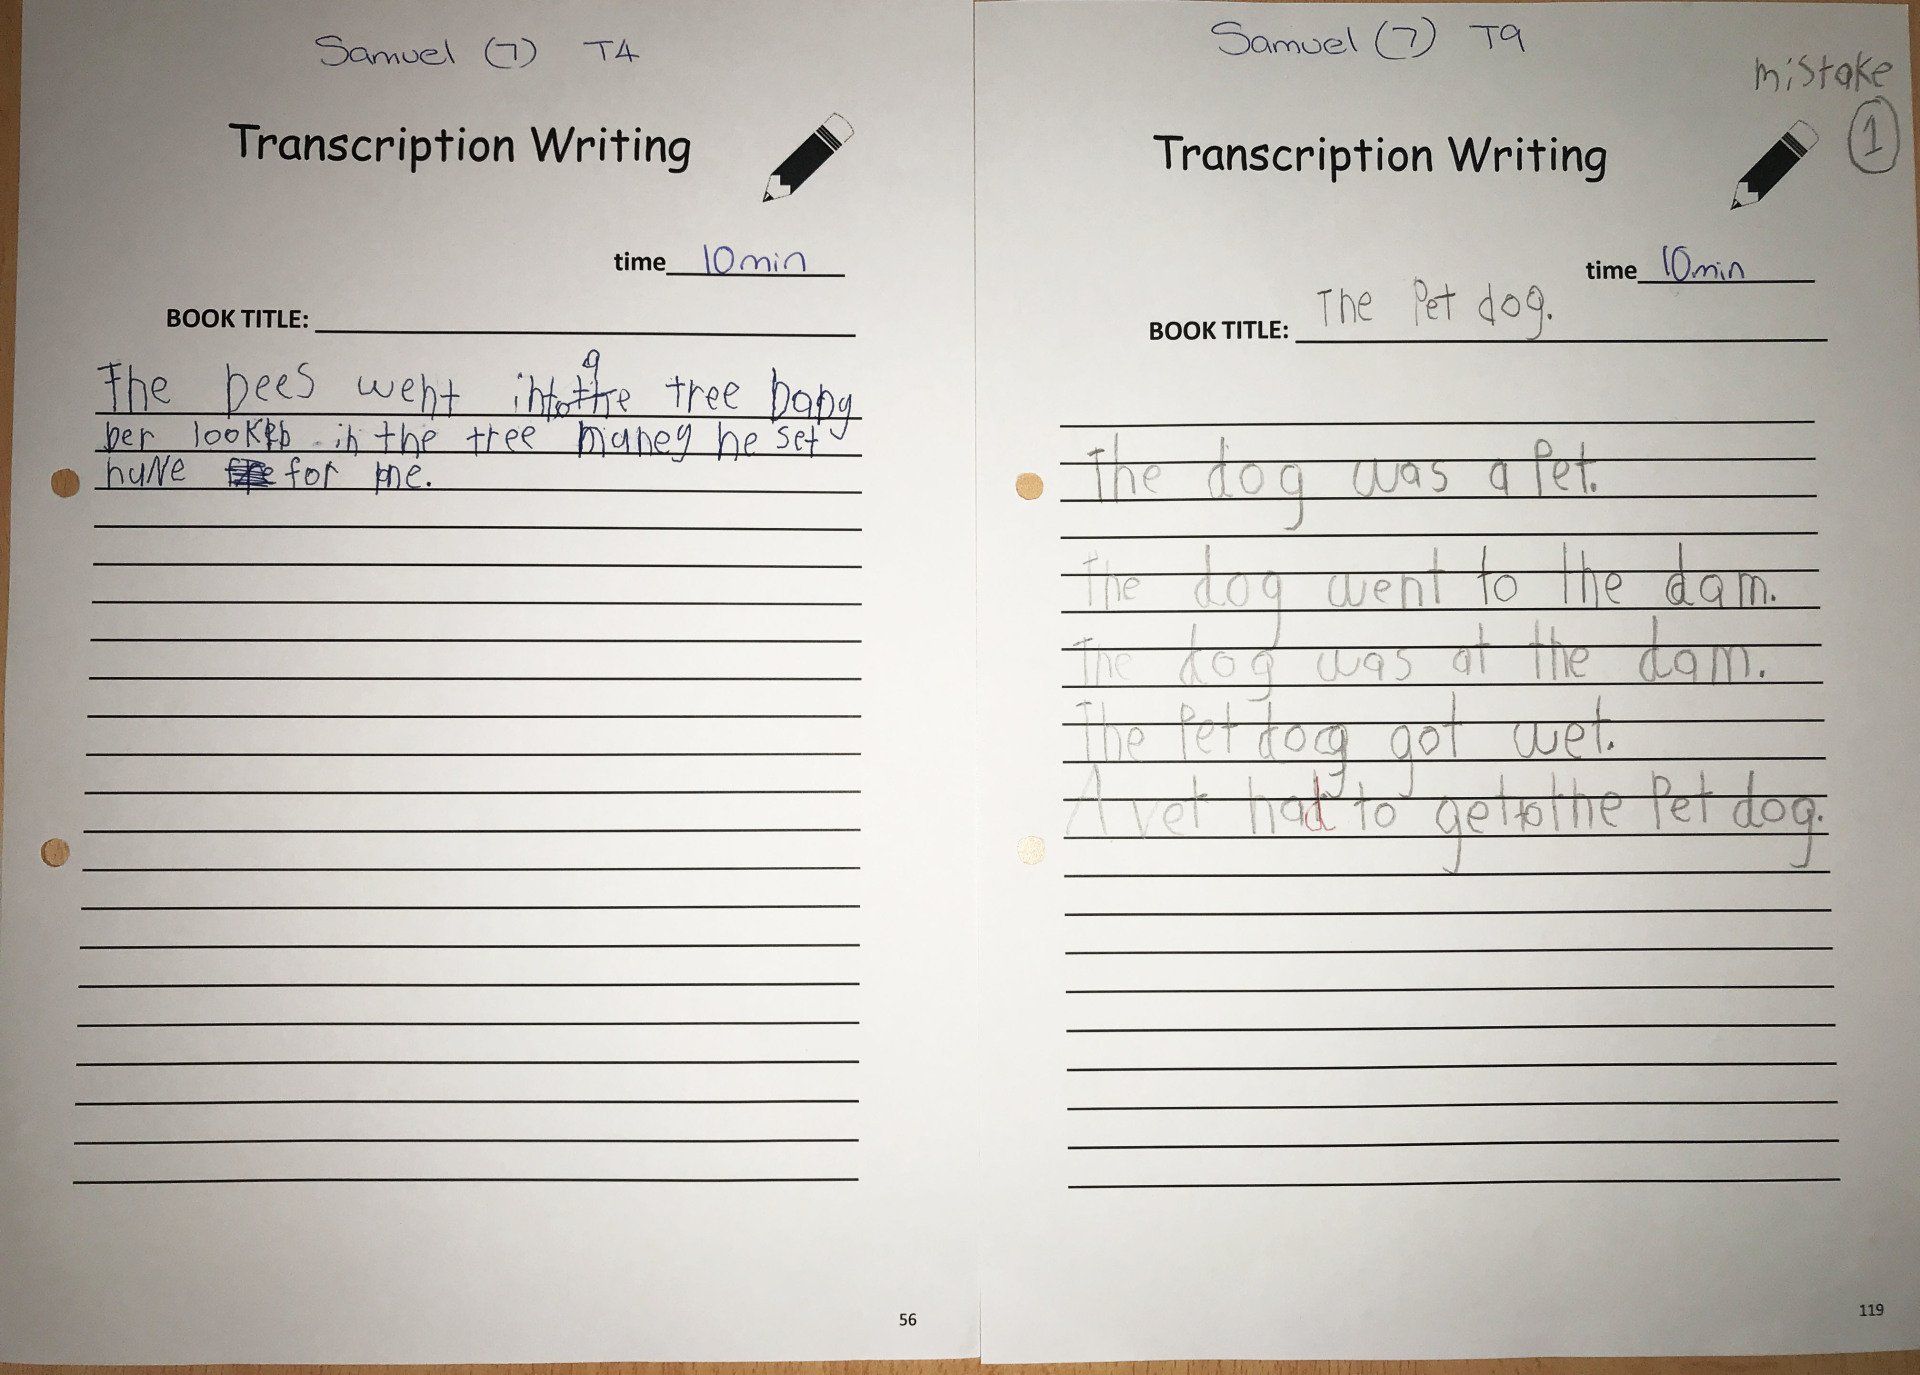 Samuel (7) T4
Transcription Writing
time 10min
BOOK TITLE:
The bees went into a the tree baby
ber lookeb in the tree maney he set
huNe for me.
56
Samuel (7) T9
mistake
1
Transcription Writing
time 10min
BOOK TITLE: The Pet dog.
The dog was a Pet.
The dog went to the dam.
The dog was at the dam.
The Pet dog got wet.
A vet had to get to the Pet dog.
119